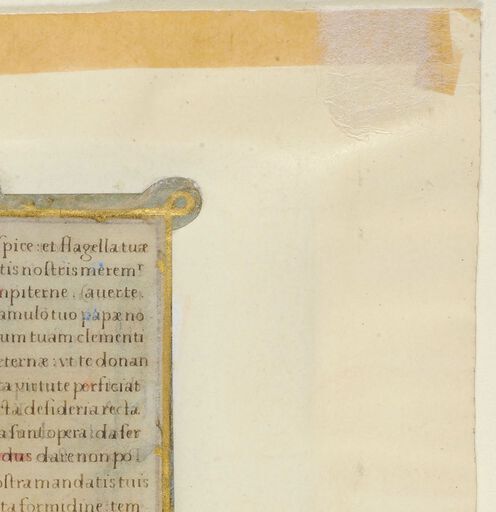 spice: et flagella tuæ
tis nostris meremr
mpiterne. sauerte
amulo tuo papæ no
um tuam clementi
eternæ: vt te donan
ta virtute perficiat
sta desideria recta
a sunt opera: da ser
dus dare non po
ostra mandatis tuis
ta formidine: tem